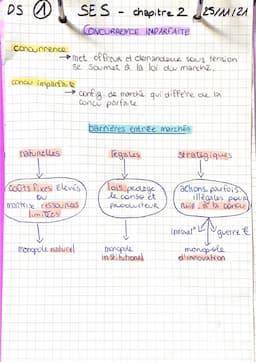 DS 1 SES - chapitre 2 25/11/21
CONCURRENCE IMPARFAITE
concurrence
→ met offreurs et demandeurs sous tension
se soumet à la loi du marché.
concu imparfaite
→ config. de marché qui diffère de la
concu parfaite.
barrières entrée marchés
naturelles légales stratégiques
coûts fixes élevés
ou
maitrise ressources
limitées
lois protège
le conso et
producteur
actions parfois
illégales pour
nuir à la concu
innovat° guerre €
monopole naturel
monopole
institutionnel
monopole
d'innovation